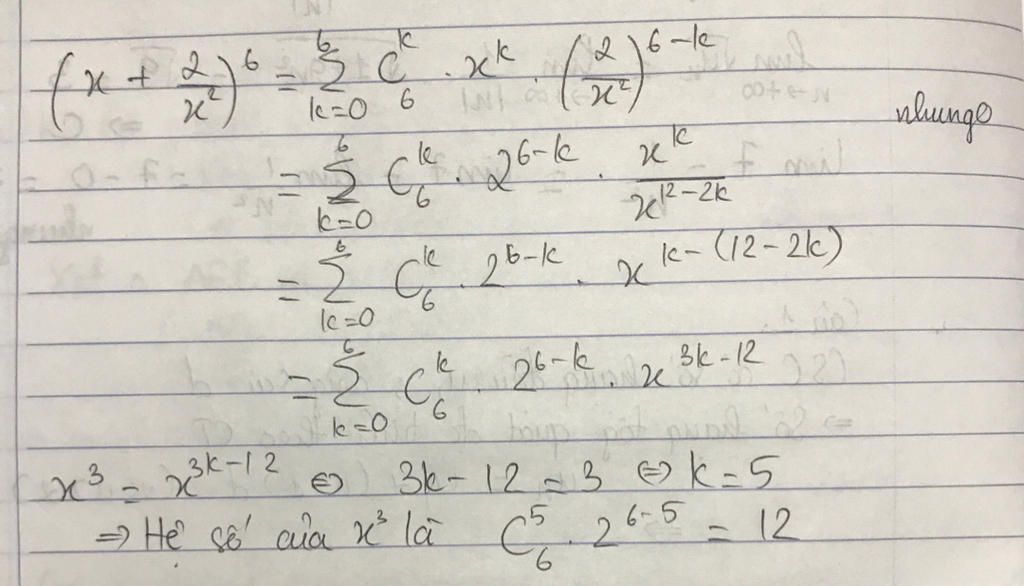 (x + 2/x²)⁶ = ∑_{k=0}^{6} C_6^k · x^k · (2/x²)^{6-k}
nhung
= ∑_{k=0}^{6} C_6^k · 2^{6-k} · x^k / x^{12-2k}
= ∑_{k=0}^{6} C_6^k · 2^{6-k} · x^{k-(12-2k)}
= ∑_{k=0}^{6} C_6^k · 2^{6-k} · x^{3k-12}
x³ = x^{3k-12} ⇔ 3k - 12 = 3 ⇔ k = 5
⇒ Hệ số của x³ là C_6^5 · 2^{6-5} = 12